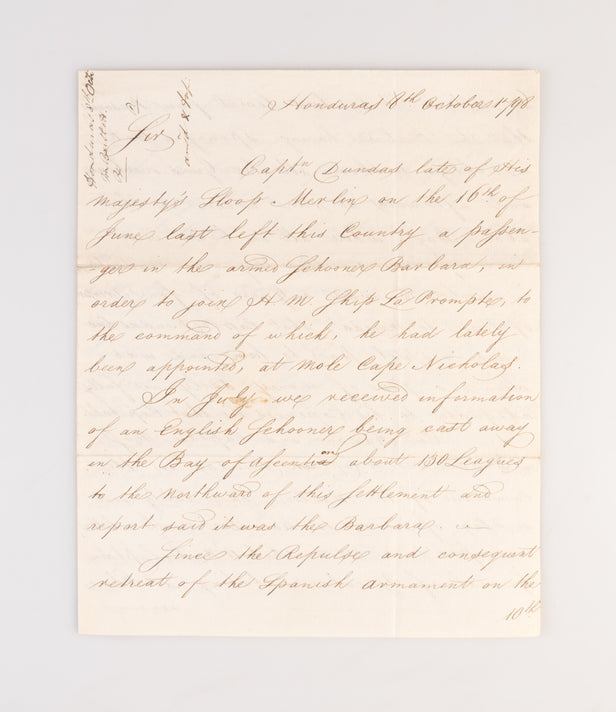 Honduras 8th October 1798
Sir
Captn Dundas late of His
majesty's Sloop Merlin on the 16th of
June last left this Country a passen-
ger in the armed Schooner Barbara, in
order to join H. M. Ship La Prompte, to
the command of which, he had lately
been appointed, at Mole Cape Nicholas.
In July we received information
of an English Schooner being cast away
in the Bay of Ascention about 130 Leagues
to the Northward of this Settlement and
report said it was the Barbara. —
Since the Repulse and consequent
retreat of the Spanish armament on the
10th
Honduras 8th Octr